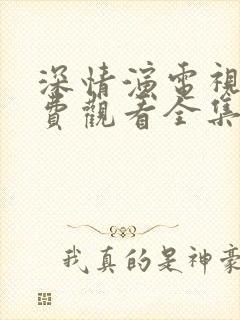 深情演電視
費觀看全集
我真的是神豪